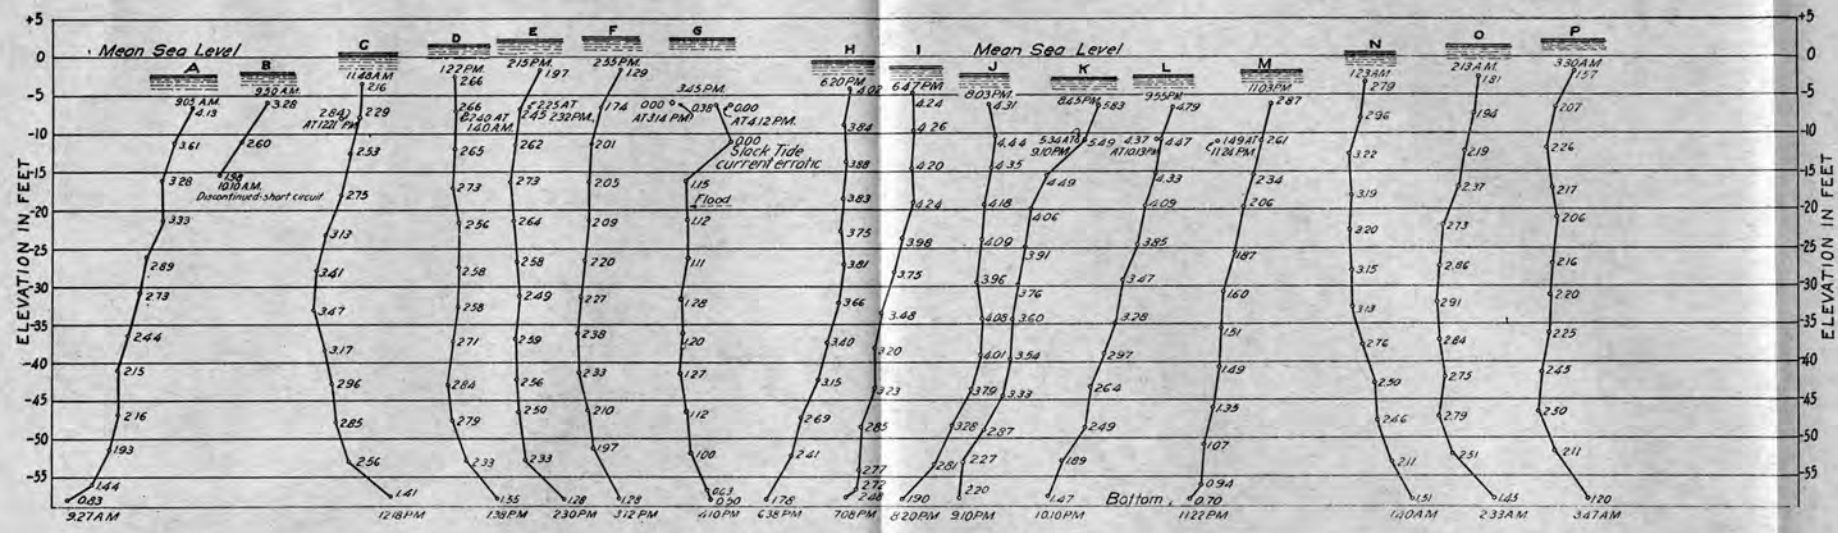 +5
0
-5
-10
-15
-20
-25
-30
-35
-40
-45
-50
-55
ELEVATION IN FEET
Mean Sea Level
A
9.05 A.M.
4.13
3.61
3.28
3.33
2.89
2.73
2.44
2.15
2.16
1.93
1.44
0.83
9.27 AM
B
9.50 A.M.
3.28
2.60
1.98
10.10 A.M.
Discontinued-short circuit
C
11.48 AM
2.16
2.84
AT 12.21 PM
2.29
2.53
2.75
3.13
3.41
3.47
3.17
2.96
2.85
2.56
1.41
12.18 PM
D
1.22 P.M.
2.66
2.66
2.40 AT
1.40 A.M.
2.65
2.73
2.56
2.58
2.58
2.71
2.84
2.79
2.33
1.55
1.38 PM
E
2.15 P.M.
1.97
2.25 AT
2.45 2.32 P.M.
2.62
2.73
2.64
2.58
2.49
2.59
2.56
2.50
2.33
1.28
2.30 PM
F
2.55 P.M.
1.29
1.74
2.01
2.05
2.09
2.20
2.27
2.38
2.33
2.10
1.97
1.28
3.12 PM
G
3.45 P.M.
0.00
AT 3.14 P.M.
0.38
0.00
AT 4.12 P.M.
0.00
Slack Tide
current erratic
1.15
Flood
1.12
1.11
1.28
1.20
1.27
1.12
1.00
0.63
0.50
4.10 PM
H
6.20 P.M.
4.02
3.84
3.88
3.83
3.75
3.81
3.66
3.40
3.15
2.69
2.41
1.78
6.38 PM
I
6.47 PM
4.24
4.26
4.20
4.24
3.98
3.75
3.48
3.20
3.23
2.85
2.77
2.72
2.48
7.08 PM
Mean Sea Level
J
8.03 P.M.
4.31
4.44
4.35
4.18
4.09
3.96
4.08
4.01
3.79
3.28
2.81
1.90
8.20 PM
K
8.45 P.M.
5.83
5.34 AT
9.10 P.M.
5.49
4.49
4.06
3.91
3.76
3.60
3.54
3.33
2.87
2.27
2.20
9.10 PM
L
9.55 P.M.
4.79
4.37
AT 10.13 P.M.
4.47
4.33
4.09
3.85
3.47
3.28
2.97
2.64
2.49
1.89
1.47
10.10 PM
M
11.03 P.M.
2.87
1.49 AT
11.24 P.M.
2.61
2.34
2.06
1.87
1.60
1.51
1.49
1.35
1.07
0.94
0.70
Bottom
11.22 PM
N
1.23 A.M.
2.79
2.96
3.22
3.19
3.20
3.15
3.13
2.76
2.50
2.46
2.11
1.51
1.40 A.M
O
2.13 A.M.
1.81
1.94
2.19
2.37
2.73
2.86
2.91
2.84
2.75
2.79
2.51
1.45
2.33 A.M.
P
3.30 A.M
1.57
2.07
2.26
2.17
2.06
2.16
2.20
2.25
2.45
2.50
2.11
1.20
3.47 AM
+5
0
-5
-10
-15
-20
-25
-30
-35
-40
-45
-50
-55
ELEVATION IN FEET